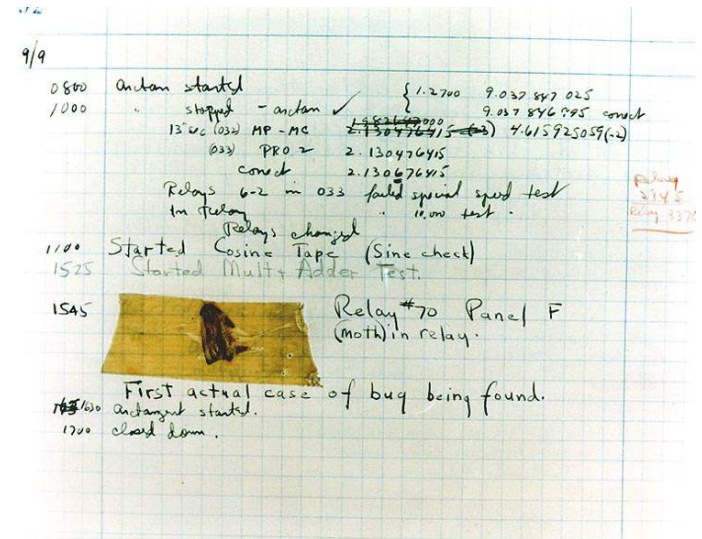 9/9
0800 antan started { 1.2700 9.037 847 025
1000 " stopped - antan ✓ 9.037 846 995 conect
13"uc (032) MP - MC 2.130476415 (-3) 4.615925059(-2)
(033) PRO 2 2.130476415
conect 2.130676415
Relays 6-2 in 033 failed special sped test
In Relay " 10,000 test .
Relays changed
1100 Started Cosine Tape (Sine check)
1525 Started Mult+ Adder Test.
1545 Relay #70 Panel F
(moth) in relay.
First actual case of bug being found.
1630 antangent started.
1700 closed down.
Relay
2145
Relay 3370